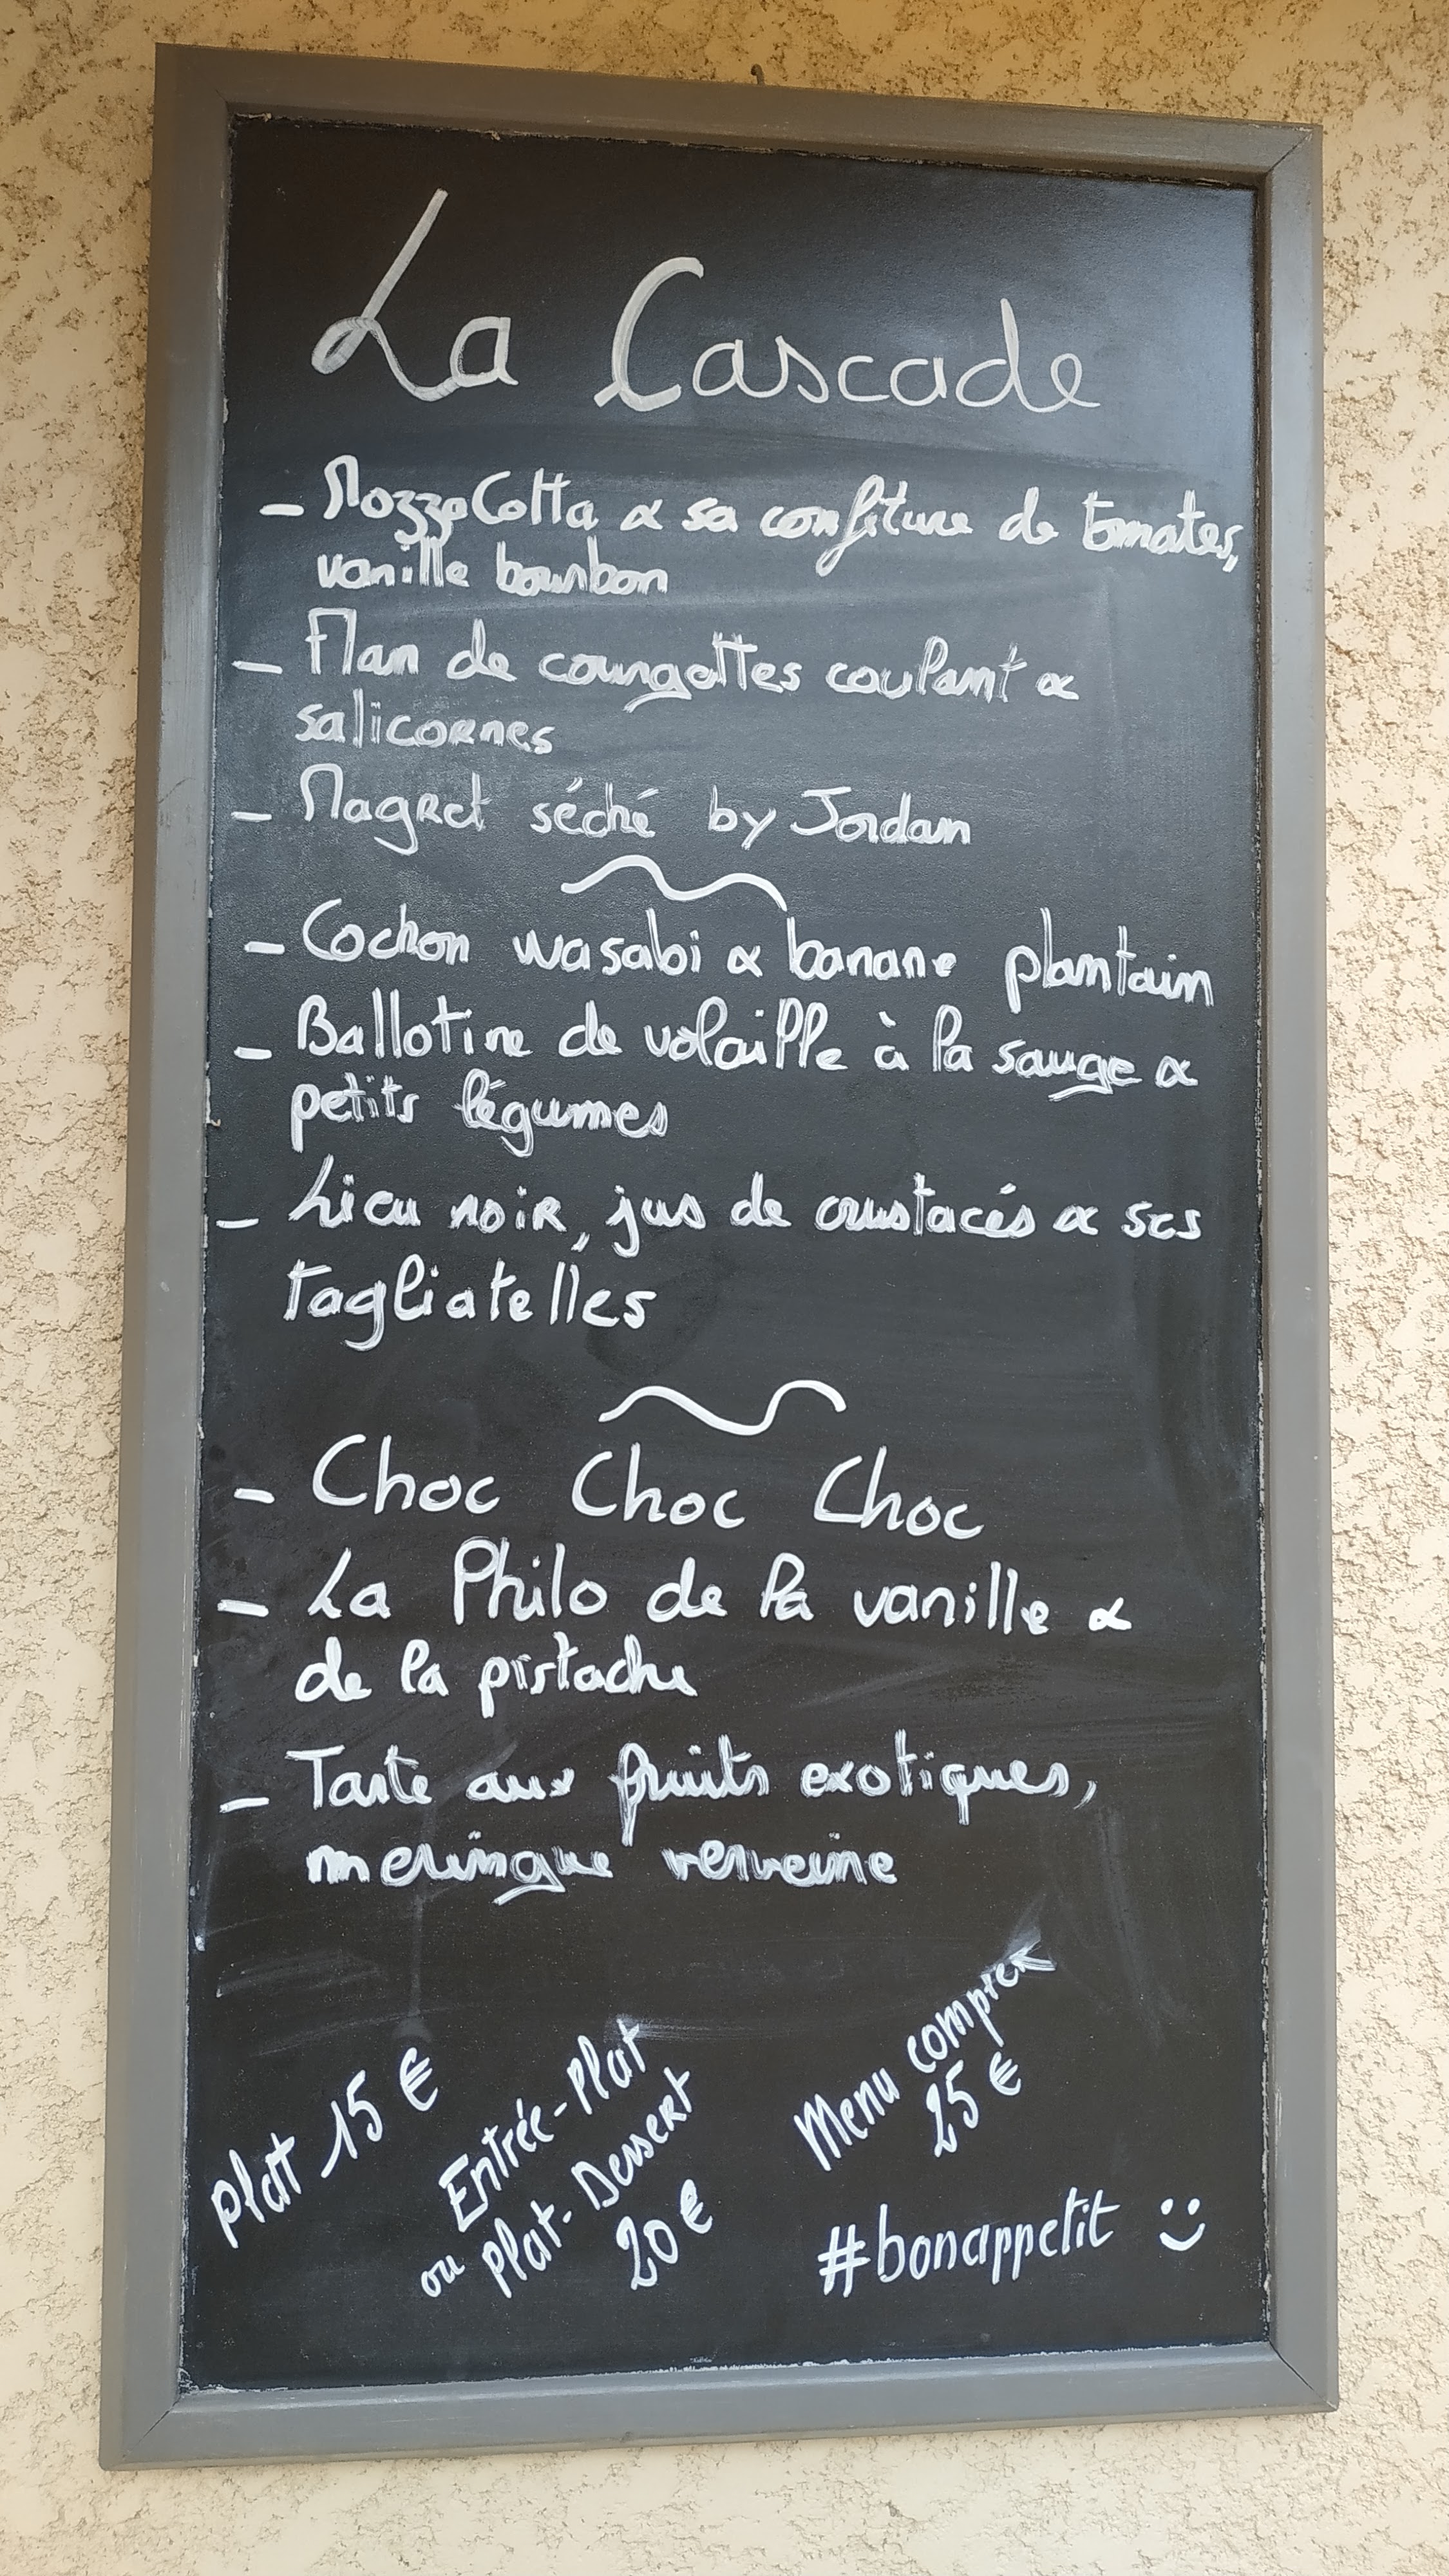 La Cascade
- MozzaCotta & sa confiture de tomates,
vanille bourbon
- Flan de courgettes coulant &
salicornes
- Magret séché by Jordan
- Cochon wasabi & banane plantain
- Ballotine de volaille à la sauge &
petits légumes
- Lieu noir, jus de crustacés & ses
tagliatelles
- Choc Choc Choc
- La Philo de la vanille &
de la pistache
- Tarte aux fruits exotiques,
meringue verveine
Plat 15 €
Entrée-Plat
ou Plat-Dessert
20 €
Menu complet
25 €
#bonappetit :)